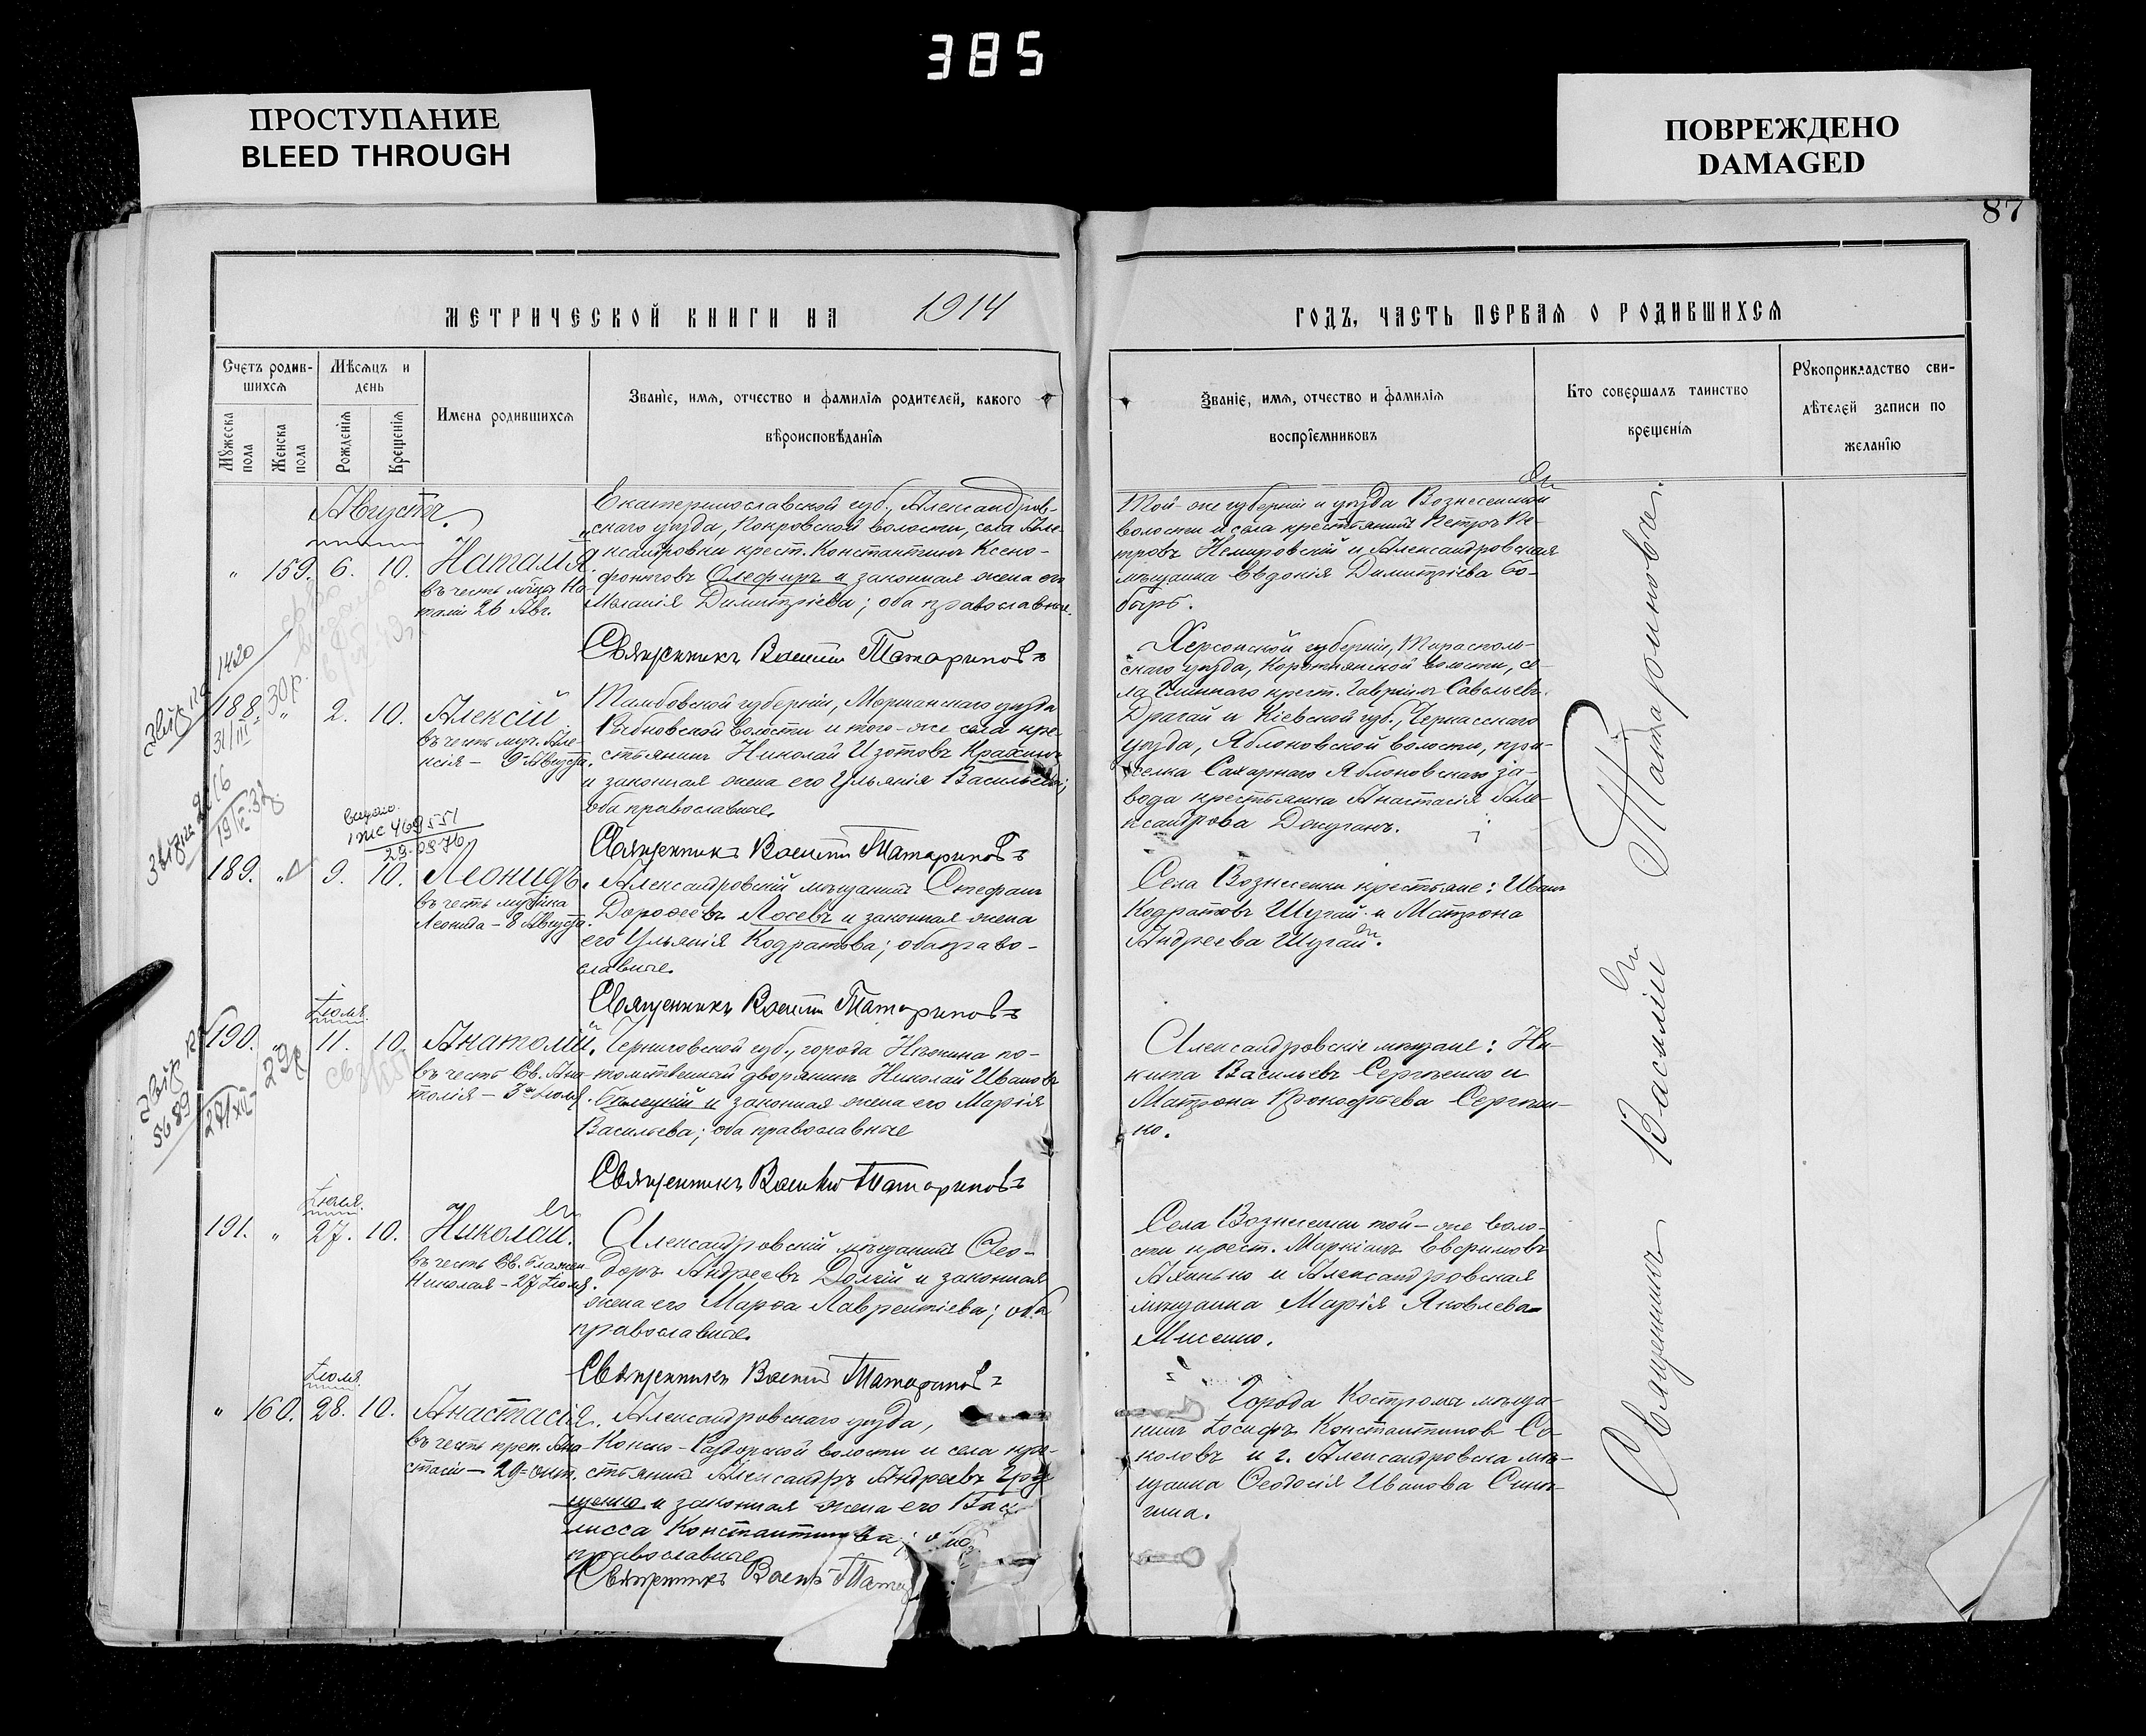 385
ПРОСТУПАНИЕ
BLEED THROUGH
ПОВРЕЖДЕНО
DAMAGED
87
МЕТРИЧЕСКОЙ КНИГИ НА 1914
ГОДЪ, ЧАСТЬ ПЕРВАЯ О РОДИВШИХСЯ
Счетъ родив-
шихся
Мѣсяцъ и
день
Мужеска
пола
Женска
пола
Рожденія
Крещенія
Имена родившихся
Званіе, имя, отчество и фамилія родителей, какого
вѣроисповѣданія
Званіе, имя, отчество и фамилія
воспріемниковъ
Кто совершалъ таинство
крещенія
Рукоприкладство сви-
дѣтелей записи по
желанію
Августъ.
" 159. 6. 10. Наталія
въ честь мчцы На-
таліи 26 Авг.
Екатеринославской губ., Александров-
скаго уѣзда, Покровской волости, села Але-
ксандровки крест. Константинъ Ксено-
фонтовъ Олефиръ и законная жена его
Меланія Димитріева; оба православные.
Священникъ Василій Татариновъ
Той-же губерніи и уѣзда Вознесенской
волости и села крестьянинъ Петръ Пе-
тровъ Немировскій и Александровская
мѣщанка Евдокія Димитріева Бо-
бырь.
1420
188. " 2. 10. Алексій
въ честь муч. Але-
ксія – 9 Августа.
30р.
31/III
Тамбовской губерніи, Моршанскаго уѣзда
Рыбновской волости и того-же села кре-
стьянинъ Николай Изотовъ
и законная жена его Ульянія Васильева;
оба православные.
Священникъ Василій Татариновъ
Херсонской губерніи, Тирасполь-
скаго уѣзда, Коротнянской волости, се-
ла Глиннаго крест. Гавріилъ Савельевъ
Драгай и Кіевской губ., Черкасскаго
уѣзда, Яблоновской волости, при-
селка Сахарнаго Яблоновскаго за-
вода крестьянка Анастасія Але-
ксандрова
469551
29.09.76
189. " 9. 10. Леонидъ.
въ честь мученика
Леонида – 8 Августа.
Александровскій мѣщанинъ Стефанъ
Дорофеевъ Лосевъ и законная жена
его Ульянія Кодратова; оба право-
славные.
Священникъ Василій Татариновъ
Села Вознесенки крестьяне: Иванъ
Кодратовъ Шугай и Матрона
Андреева Шугай.
Іюля.
190. " 11. 10. Анатолій.
въ честь Св. Ана-
толія – 3го Іюля.
29р
5689
Черниговской губ., города Нѣжина по-
томственный дворянинъ Николай Ивановъ
и законная жена его Марія
Васильева; оба православные
Священникъ Василій Татариновъ
Александровскіе мѣщане: Ни-
кита Васильевъ Сергѣенко и
Матрона Прокофьева Сергѣен-
ко.
Іюля.
191. " 27. 10. Николай.
въ честь Св. блажен.
Николая – 27 Іюля.
Александровскій мѣщанинъ Ѳео-
доръ Андреевъ Долгій и законная
жена его Марѳа Лаврентіева; оба
православные.
Священникъ Василій Татариновъ
Села Вознесенки той-же воло-
сти крест. Маркіанъ Евфимовъ
и Александровская
мѣщанка Марія Яковлева
Мисенко.
Іюля.
" 160. 28. 10. Анастасія.
въ честь преп. Ана-
стасіи – 29 окт.
Александровскаго уѣзда,
Конско-Раздорской волости и села кре-
стьянинъ Александръ Андреевъ
и законная жена его Васи-
лисса Константинова; оба
православные
Священникъ Васил Татар
Города Костромы мѣща-
нинъ Іосифъ Константиновъ Со-
коловъ и г. Александровска мѣ-
щанка Ѳеодосія Иванова Сини-
гина.
Священникъ Василій Татариновъ.